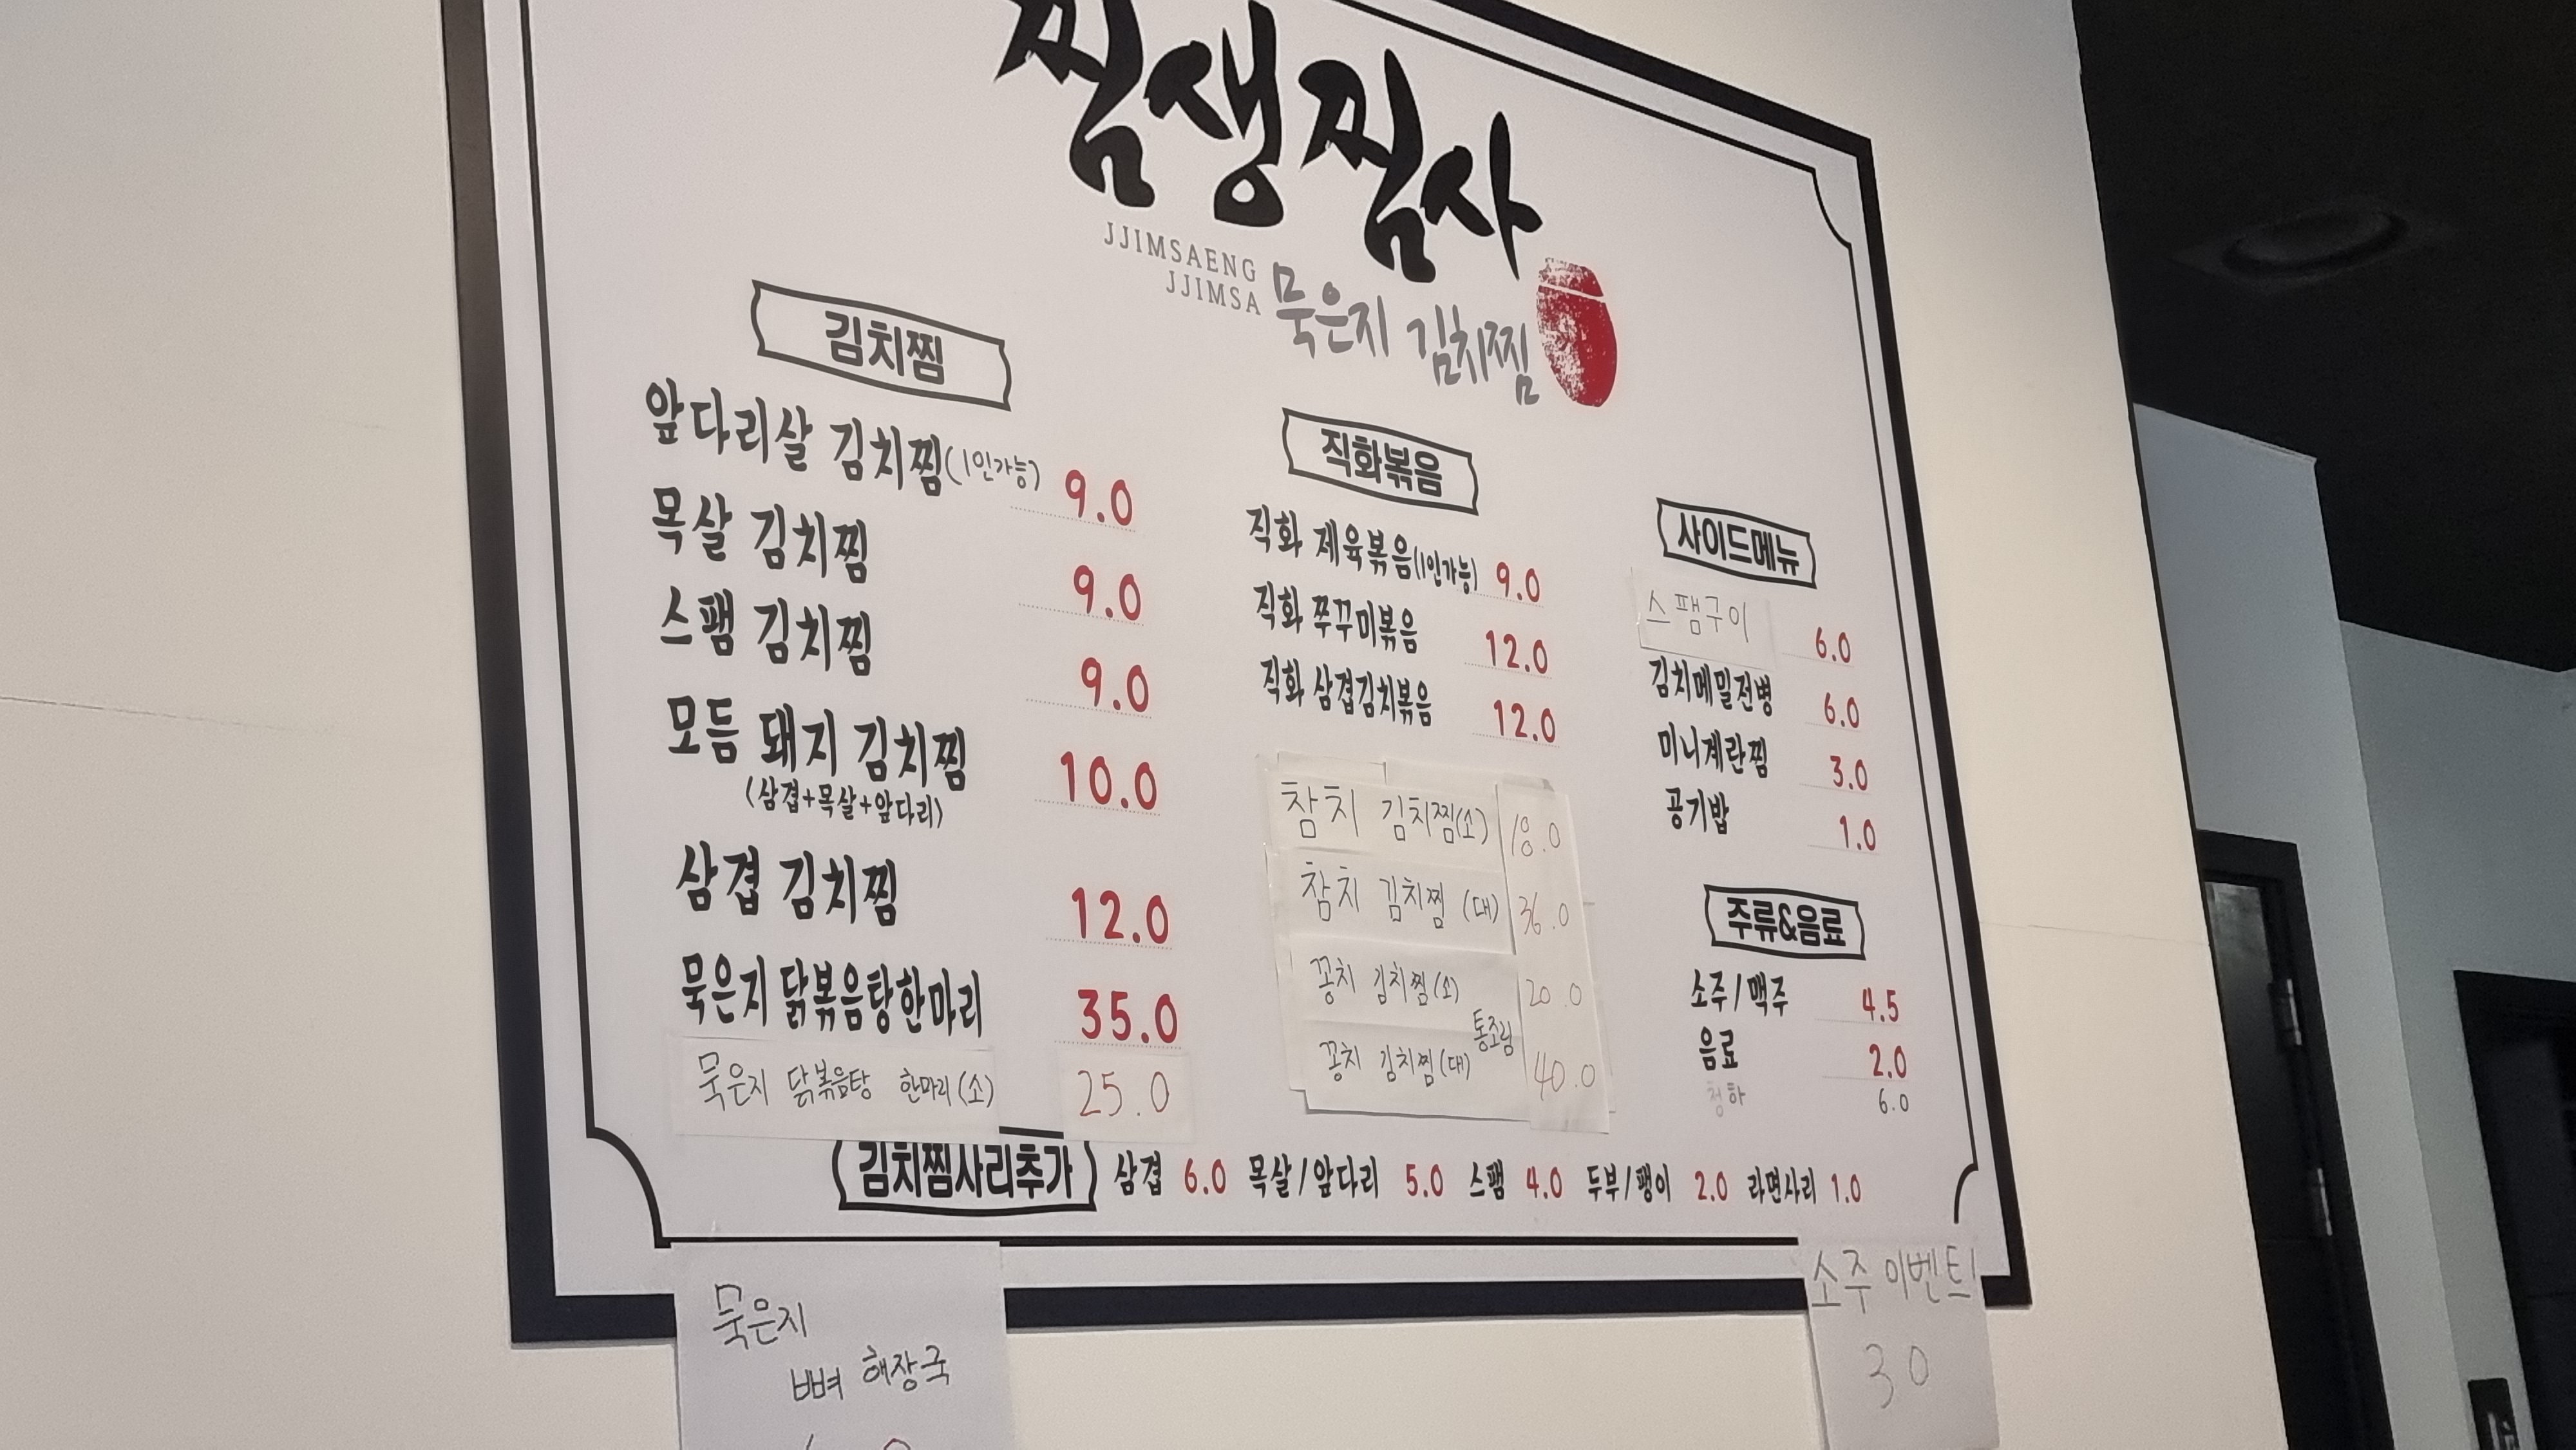 찜생찜사
JJIMSAENG
JJIMSA
묵은지 김치찜
김치찜
앞다리살 김치찜(1인가능) 9.0
목살 김치찜 9.0
스팸 김치찜 9.0
모듬 돼지 김치찜 10.0
(삼겹+목살+앞다리)
삼겹 김치찜 12.0
묵은지 닭볶음탕한마리 35.0
묵은지 닭볶음탕 한마리(소) 25.0
직화볶음
직화 제육볶음(1인가능) 9.0
직화 쭈꾸미볶음 12.0
직화 삼겹김치볶음 12.0
참치 김치찜(소) 18.0
참치 김치찜 (대) 36.0
꽁치 김치찜(소) 20.0
통조림
꽁치 김치찜(대) 40.0
사이드메뉴
스팸구이 6.0
김치메밀전병 6.0
미니계란찜 3.0
공기밥 1.0
주류&음료
소주/맥주 4.5
음료 2.0
청하 6.0
김치찜사리추가 삼겹 6.0 목살/앞다리 5.0 스팸 4.0 두부/팽이 2.0 라면사리 1.0
묵은지
뼈 해장국
소주 이벤트!
3.0